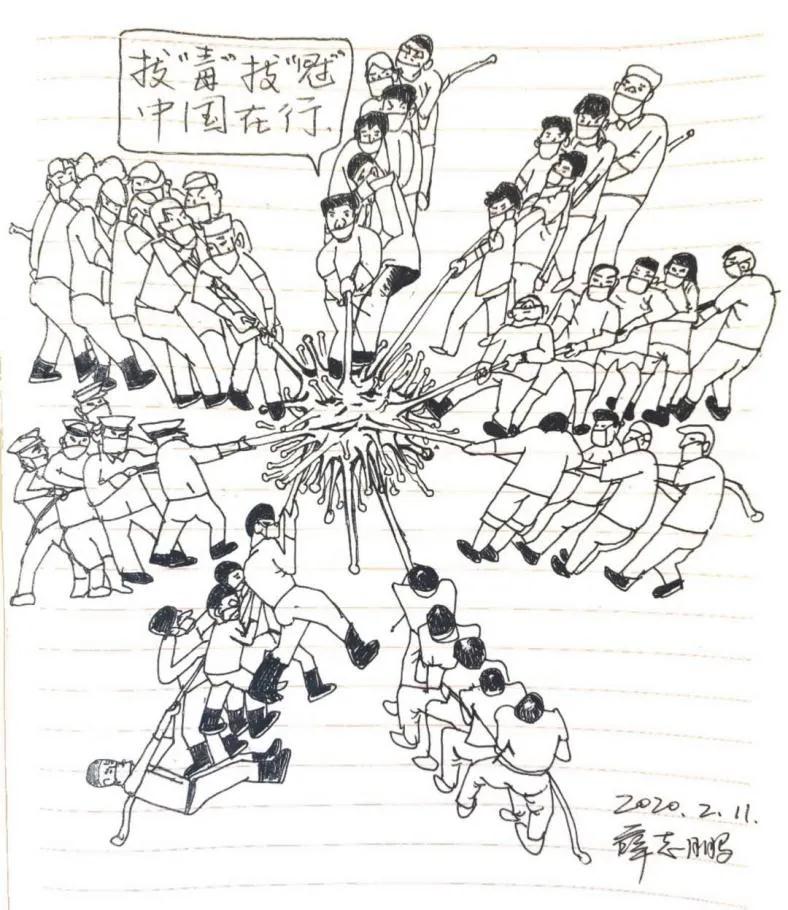 拔"毒"拔"冠"
中国在行.
2020.2.11.
薛志鹏